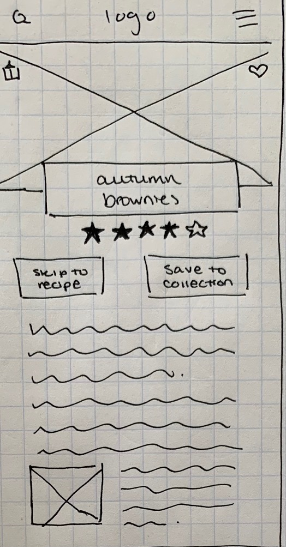 logo
autumn
brownies
skip to
recipe
save to
collection